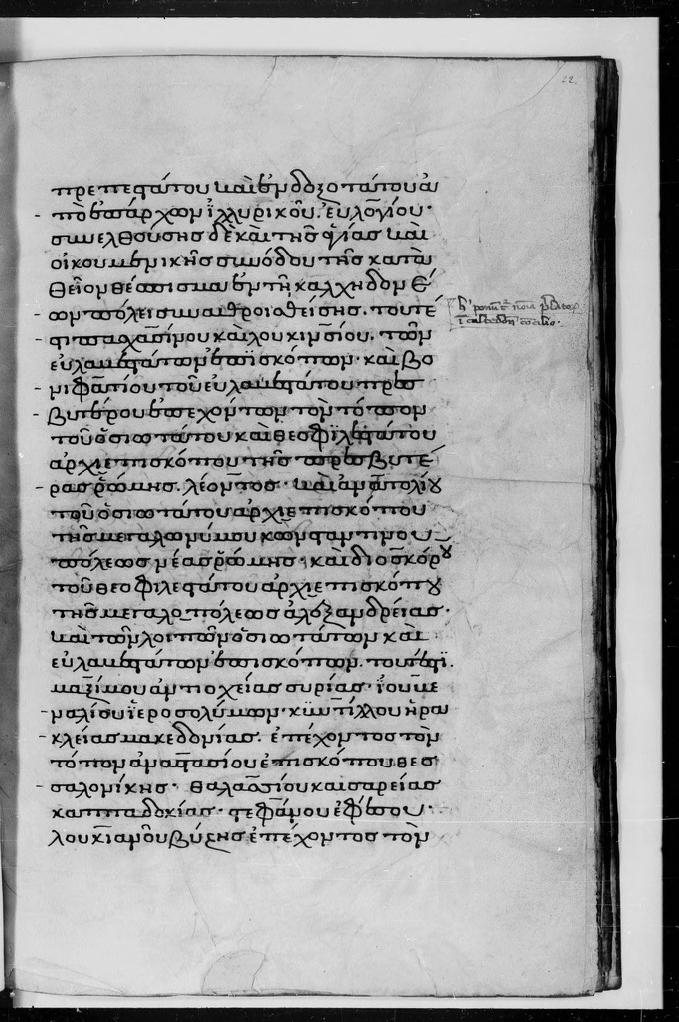 22
πρεπεστάτου καὶ ἐνδοξοτάτου ἀ
πὸ ἐπάρχων ἰλλυρικοῦ. εὐλογίου·
συνελθούσης δὲ καὶ τῆς ἁγίας καὶ
οἰκουμενικῆς συνόδου τῆς κατὰ
θεῖον θέσπισμα ἐν τῆ καλχηδονέ
ων πόλει συναθροισθείσης. τουτέ
στι πασχασίνου καὶ λουκινσίου. τῶν
εὐλαβεστάτων ἐπισκόπων· καὶ βο
νιφατίου τοῦ εὐλαβεστάτου πρεσ
βυτέρου ἐπεχόντων τὸν τόπον
τοῦ ὁσιωτάτου καὶ θεοφιλεστάτου
ἀρχιεπισκόπου τῆς πρεσβυτέ
ρας ῥώμης. λέοντος· καὶ ἀνατολίου
τοῦ ὁσιωτάτου ἀρχιεπισκόπου
τῆς μεγαλωνύμου κωνσταντίνου
πόλεως νέας ῥώμης· καὶ διοσκόρου
τοῦ θεοφιλεστάτου ἀρχιεπισκόπου
τῆς μεγαλοπόλεως ἀλεξανδρείας·
καὶ τῶν λοιπῶν ὁσιωτάτων καὶ
εὐλαβεστάτων ἐπισκόπων. τουτέστι.
μαξίμου ἀντιοχείας συρίας· ἰουβε
ναλίου ἱεροσολύμων· κυντίλλου ἡρα
κλείας μακεδονίας. ἐπέχοντος τὸν
τόπον ἀναστασίου ἐπισκόπου θεσ
σαλονίκης· θαλασσίου καισαρείας
καππαδοκίας· στεφάνου ἐφέσου·
λουκιανοῦ βύζης ἐπέχοντος τὸν